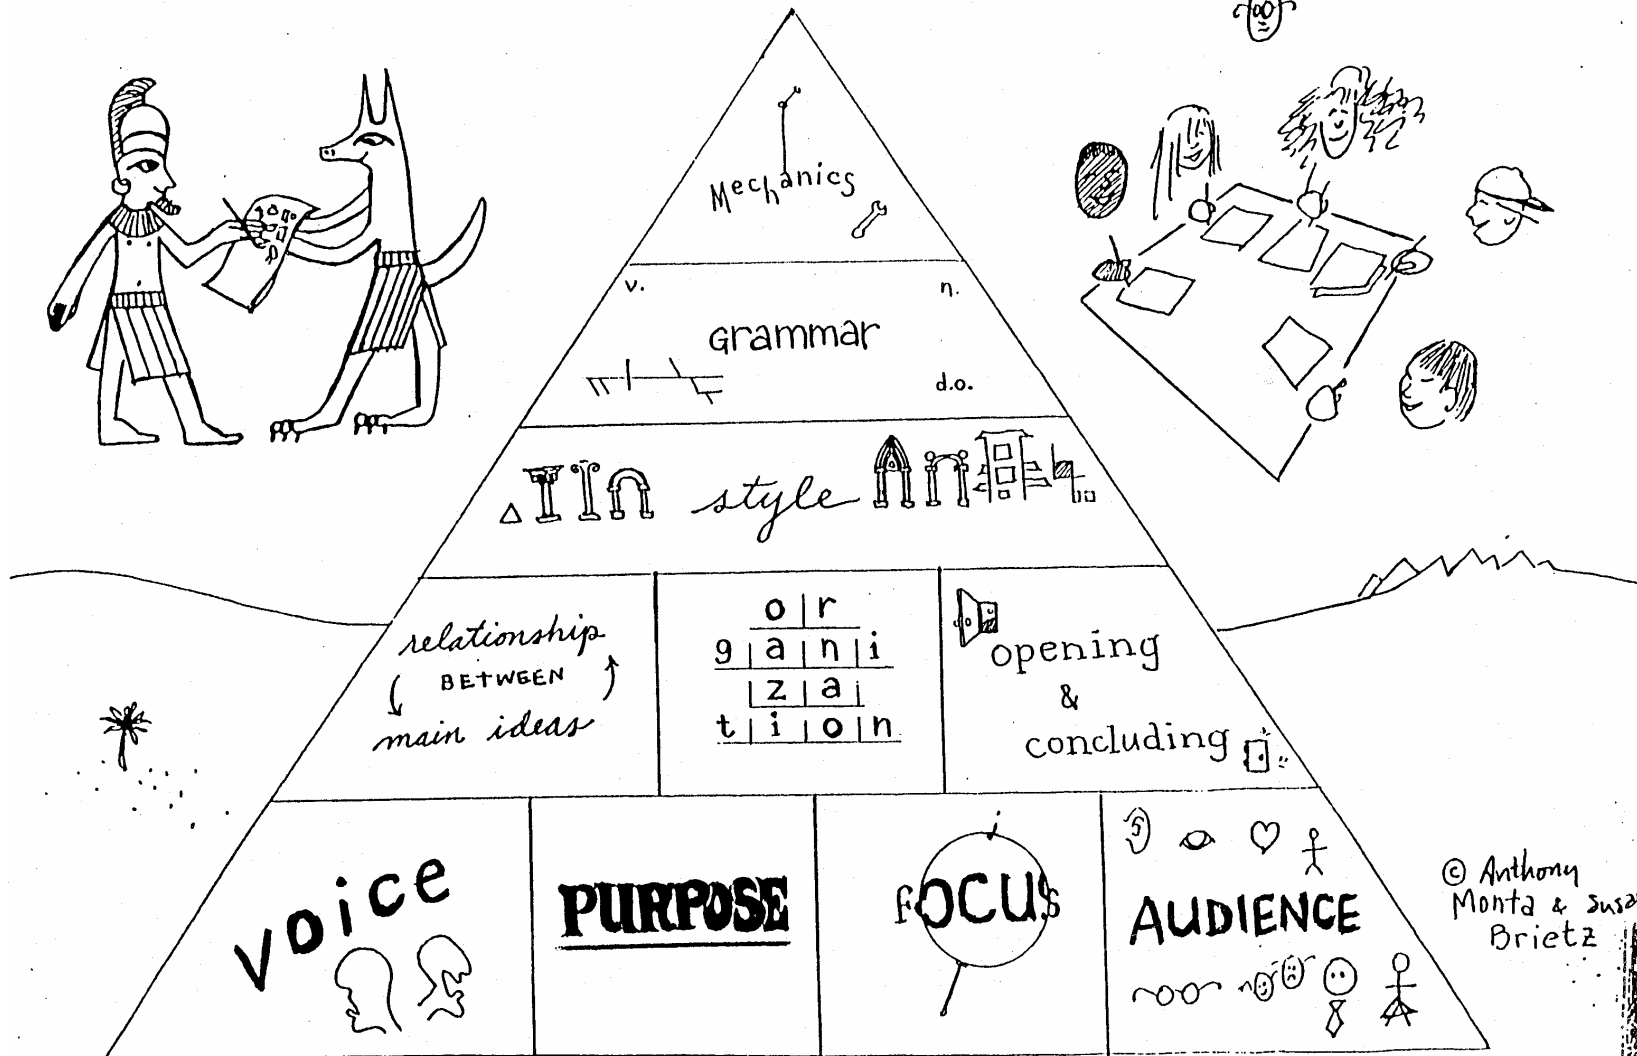 Mechanics
v. n.
Grammar
d.o.
style
relationship
BETWEEN
main ideas
or
gani
za
tion
opening
&
concluding
voice
PURPOSE
focus
AUDIENCE
© Anthony
Monta & Susa
Brietz